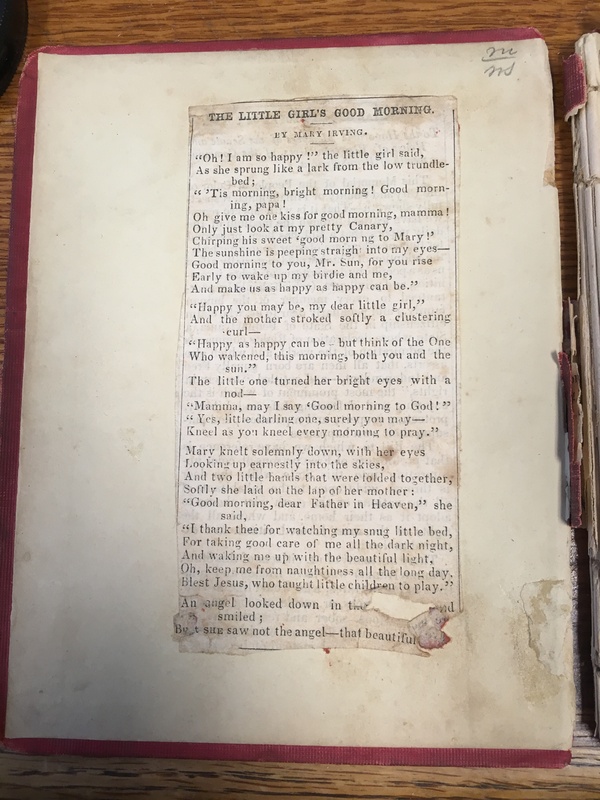 THE LITTLE GIRL'S GOOD MORNING.
BY MARY IRVING.
"Oh! I am so happy!" the little girl said,
As she sprung like a lark from the low trundle-
bed;
" 'Tis morning, bright morning! Good morn-
ing, papa!
Oh give me one kiss for good morning, mamma!
Only just look at my pretty Canary,
Chirping his sweet 'good morn ng to Mary!'
The sunshine is peeping straigh into my eyes—
Good morning to you, Mr. Sun, for you rise
Early to wake up my birdie and me,
And make us as happy as happy can be."
"Happy you may be, my dear little girl,"
And the mother stroked softly a clustering
curl—
"Happy as happy can be - but think of the One
Who wakened, this morning, both you and the
sun."
The little one turned her bright eyes with a
nod—
"Mamma, may I say 'Good morning to God!"
"Yes, little darling one, surely you may—
Kneel as you kneel every morning to pray."
Mary knelt solemnly down, with her eyes
Looking up earnestly into the skies,
And two little hands that were folded together,
Softly she laid on the lap of her mother:
"Good morning, dear Father in Heaven," she
said,
"I thank thee for watching my snug little bed,
For taking good care of me all the dark night,
And waking me up with the beautiful light.
Oh, keep me from naughtiness all the long day,
Blest Jesus, who taught little children to play."
An angel looked down in
smiled;
SHE saw not the angel—that beautiful